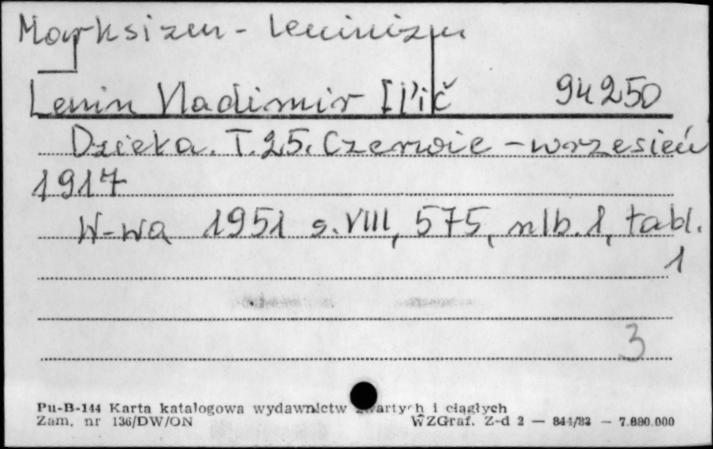 Marksizm - leninizm
Lenin Vladimir Il'ič 94250
Dzieła. T.25. Czerwiec - wrzesień
1917
W-wa 1951 s. VIII, 575, nlb. 1, tabl.
1
3
Pu-B-144 Karta katalogowa wydawnictw zwartych i ciągłych
Zam. nr 136/DW/ON WZGraf. Z-d 2 — 844/82 — 7.890.000